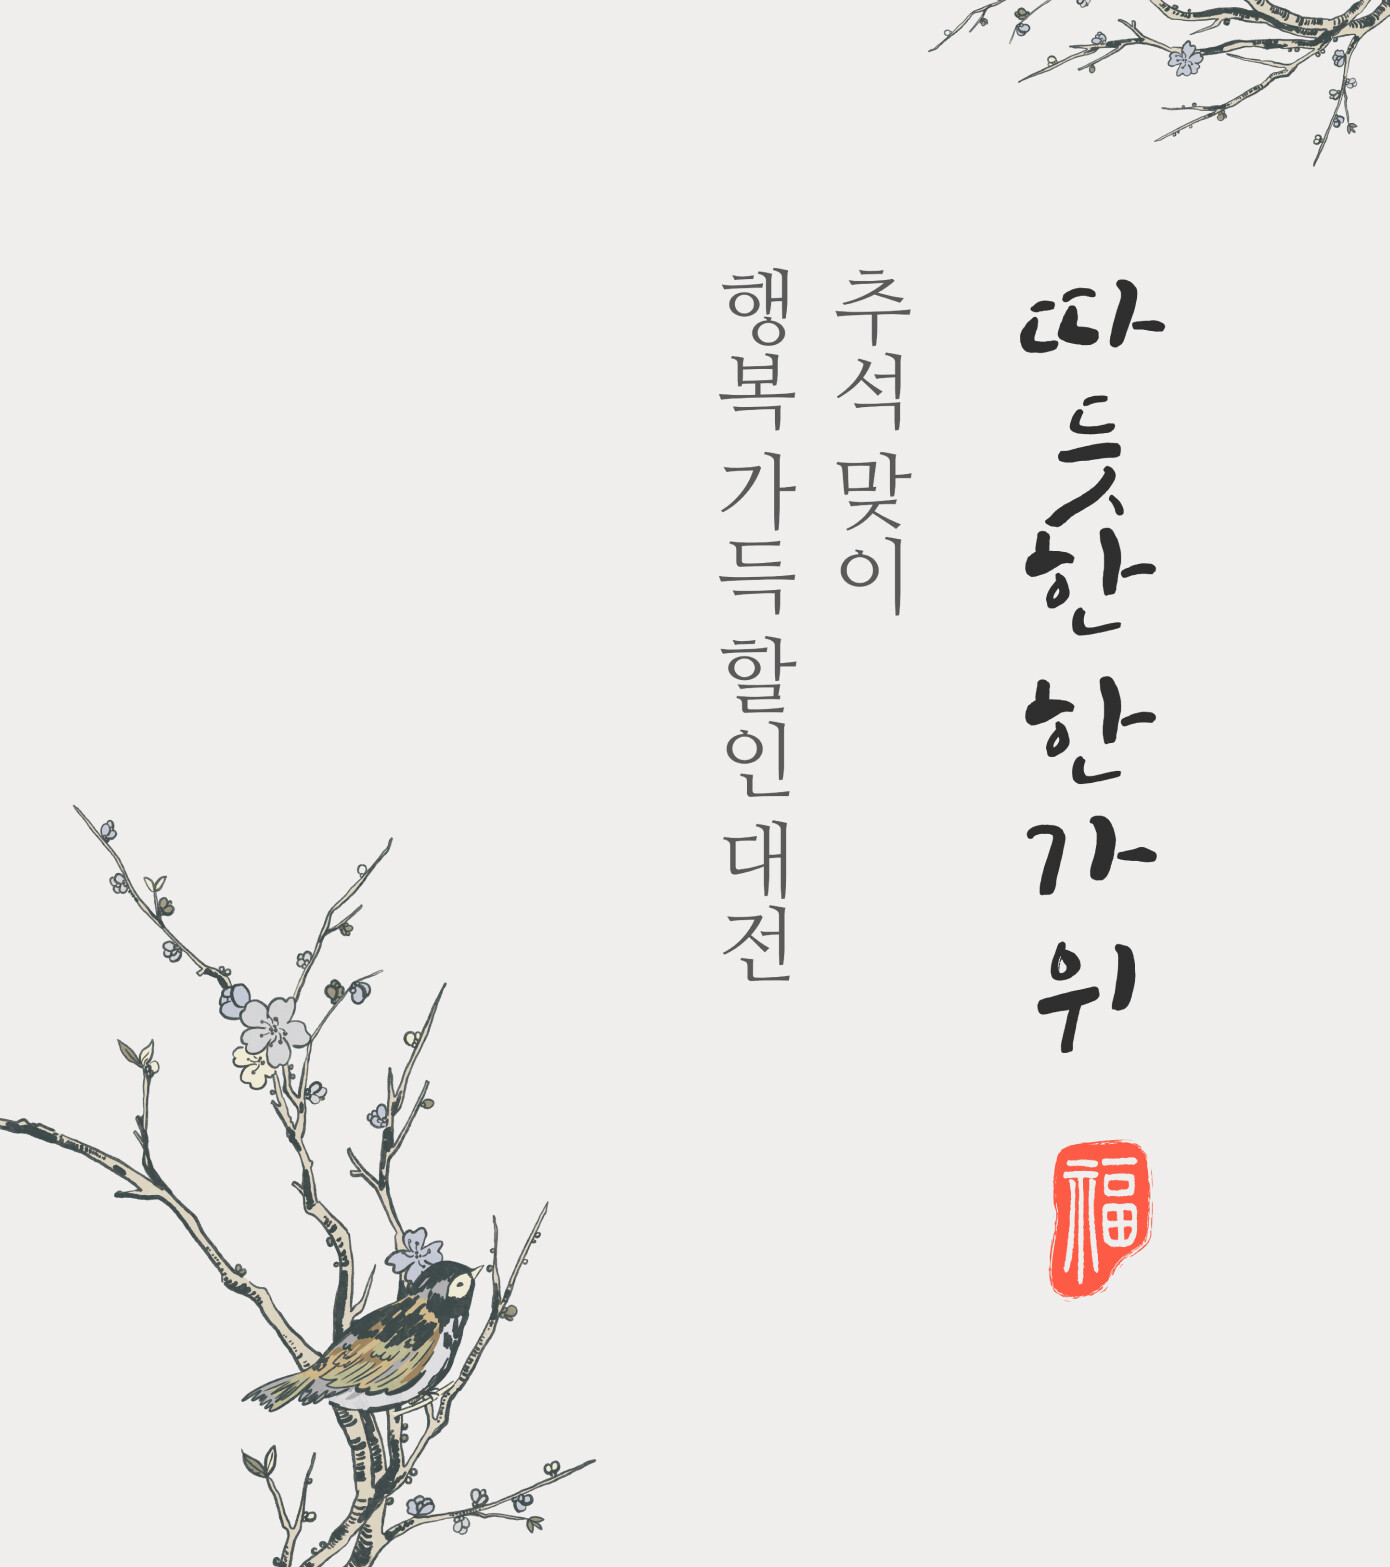 따듯한 한가위
福
추석 맞이
행복 가득 할인 대전